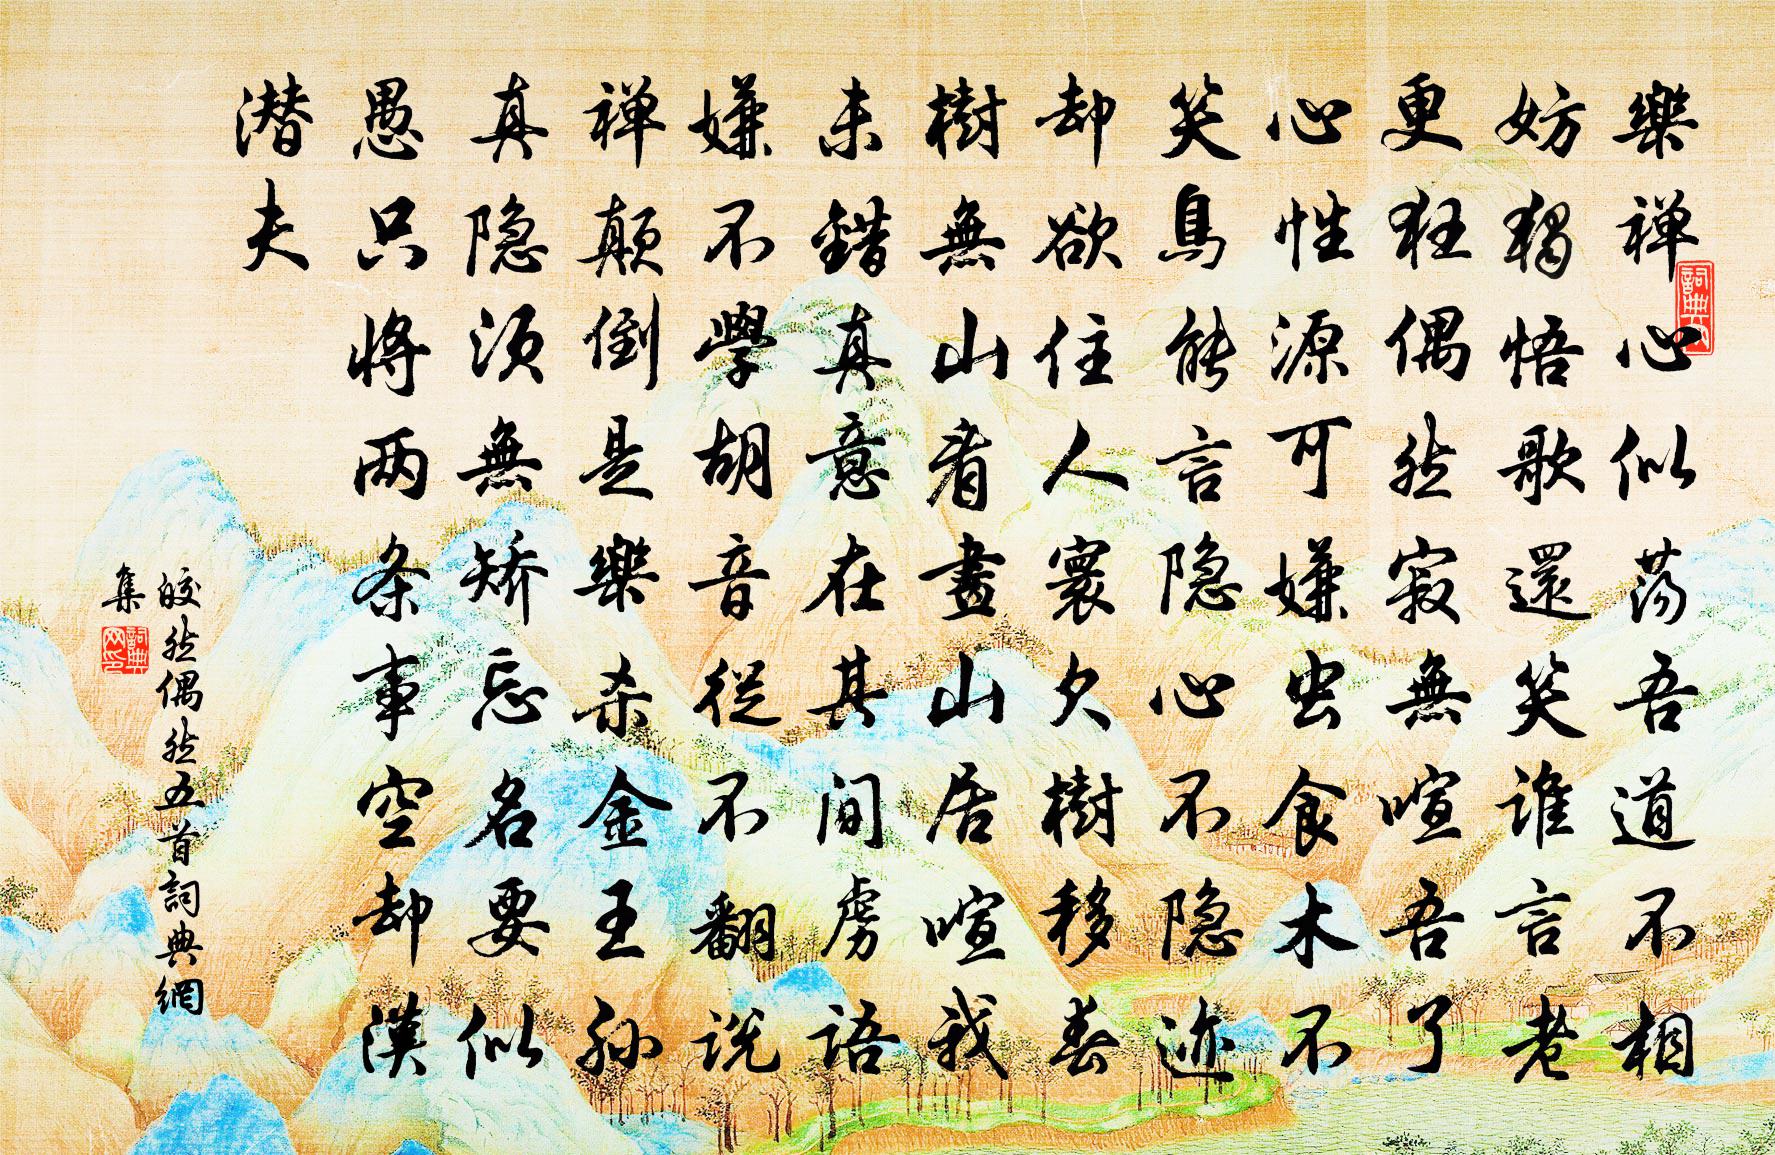 樂禅心似荡吾道不相
妨獨悟歌還笑谁言老
更狂偶然寂無喧吾了
心性源可嫌虫食木不
笑鳥能言隐心不隐迹
却欲住人寰欠樹移春
樹無山看畫山居喧我
未錯真意在其间虏语
嫌不學胡音從不翻说
禅颠倒是樂杀金王孙
真隐须無矫忘名要似
愚只将两条事空却漢
潜夫
皎然偶然五首詞典網
集
詞典
詞典网印